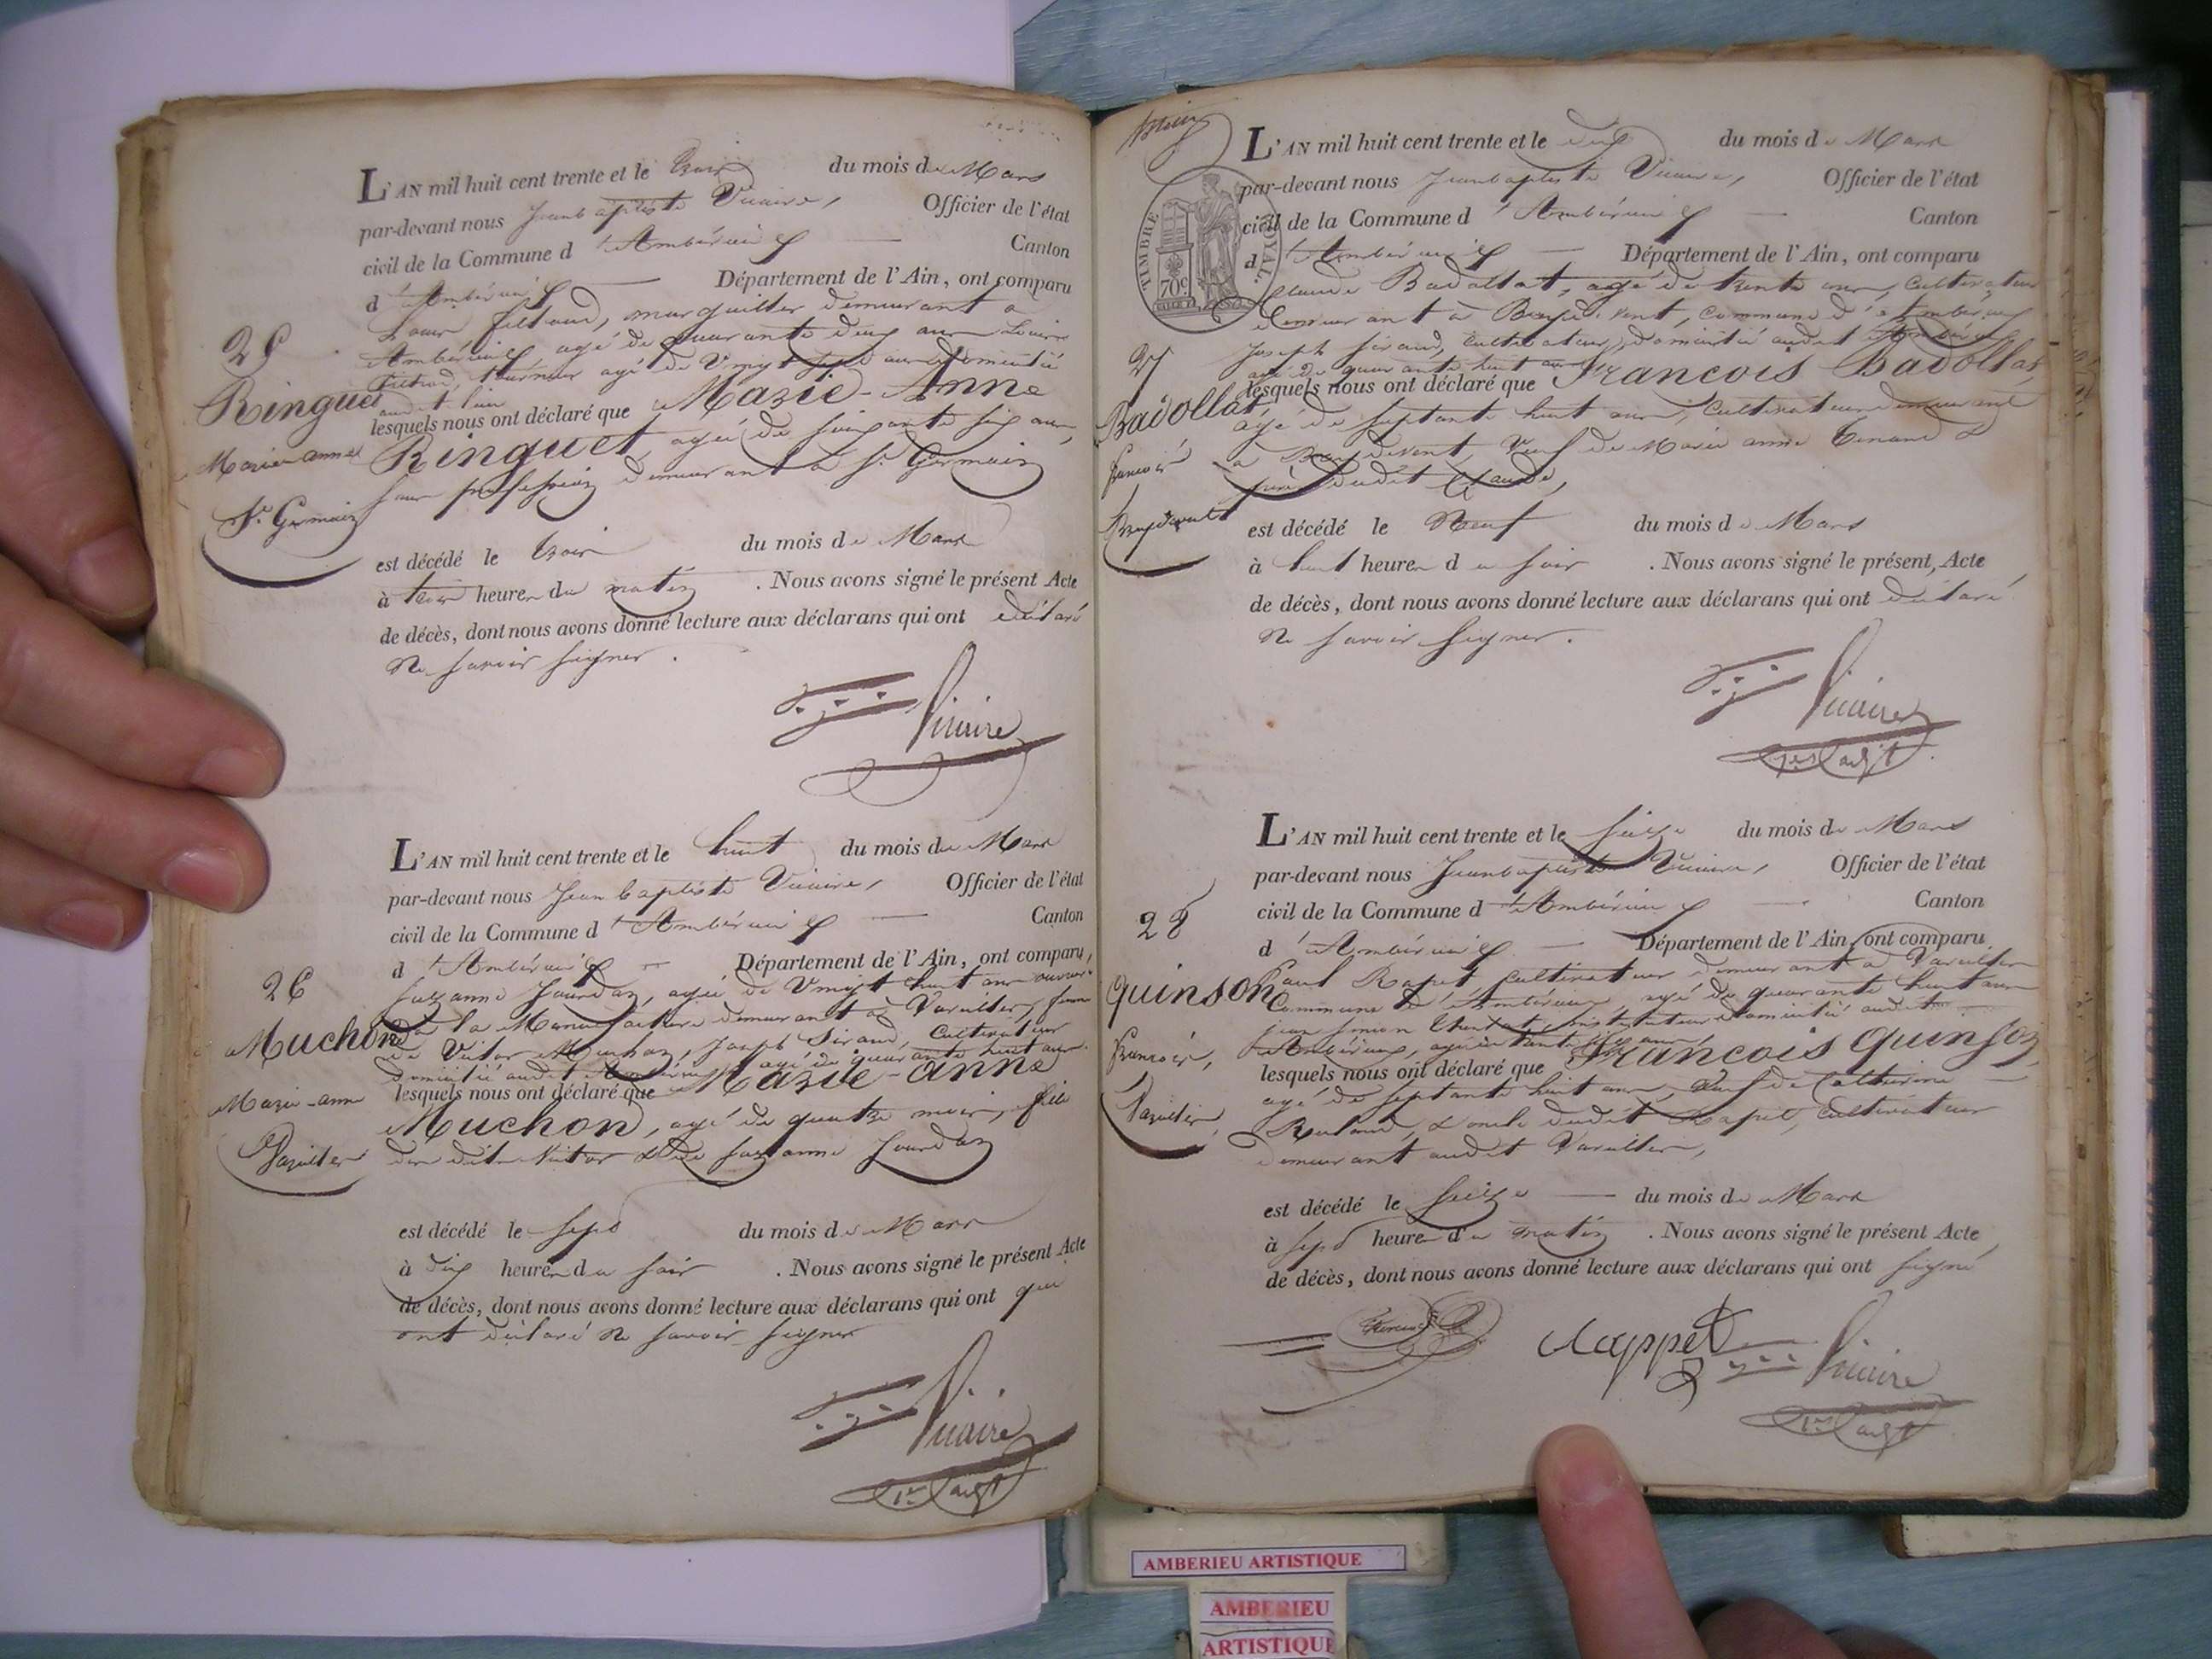 L'AN mil huit cent trente et le trois du mois de Mars
par-devant nous Jean baptiste Vicaire, Officier de l'état
civil de la Commune d'Ambérieux Canton
d'Ambérieux Département de l'Ain, ont comparu
Louis marguillier demeurant à
Ambérieux, agé de quarante deux ans Louis
tourneur agé de Vingt sept ans domicilié
audit lieu
lesquels nous ont déclaré que Marie-Anne
Ringuet, agée de soixante six ans,
sans profession demeurant à St. Germain
est décédé le trois du mois de Mars
à trois heures du matin. Nous avons signé le présent Acte
de décès, dont nous avons donné lecture aux déclarans qui ont déclaré
ne savoir signer.
Vicaire
25
Ringuet
Marie anne
St. Germain
L'AN mil huit cent trente et le huit du mois de Mars
par-devant nous Jean baptiste Vicaire, Officier de l'état
civil de la Commune d'Ambérieux Canton
d'Ambérieux Département de l'Ain, ont comparu,
Suzanne Jourdan, agée de Vingt huit ans ouvrière
à la Manufacture demeurant à Vareilles, femme
de Victor Muchon, Joseph Siraud, Cultivateur
domicilié audit Ambérieux agé de quarante huit ans
lesquels nous ont déclaré que Marie-anne
Muchon, agé de quatre mois, fille
Victor & de Suzanne Jourdan
est décédé le sept du mois de Mars
à dix heures du soir. Nous avons signé le présent Acte
de décès, dont nous avons donné lecture aux déclarans qui ont qui
ont déclaré ne savoir signer
Vicaire
1er adjt
26
Muchon
Marie-anne
Vareilles
L'AN mil huit cent trente et le dix du mois de Mars
par-devant nous Jean baptiste Vicaire, Officier de l'état
civil de la Commune d'Ambérieux Canton
d'Ambérieux Département de l'Ain, ont comparu
Claude Badollat, agé de trente ans, Cultivateur
demeurant à Breydevent, Commune d'Ambérieux
Joseph Siraud, Cultivateur, domicilié audit Ambérieux
agé de quarante huit ans
lesquels nous ont déclaré que Francois Badollat,
agé de septante huit ans, Cultivateur demeurant
à Breydevent, Veuf de Marie anne Tenand &
père dudit Claude,
est décédé le Neuf du mois de Mars
à huit heures du soir. Nous avons signé le présent, Acte
de décès, dont nous avons donné lecture aux déclarans qui ont déclaré
ne savoir signer.
Vicaire
1er adjt
TIMBRE ROYAL.
70c
27
Badollat,
francois
Breydevent
L'AN mil huit cent trente et le seize du mois de Mars
par-devant nous Jean baptiste Vicaire, Officier de l'état
civil de la Commune d'Ambérieux Canton
d'Ambérieux Département de l'Ain, ont comparu
Paul Rapet, Cultivateur demeurant à Vareilles
Commune d'Ambérieux, agé de quarante huit ans
instituteur domicilié audit
Ambérieux,
lesquels nous ont déclaré que Francois Quinson
agé de septante huit ans, Veuf de Catherine
& oncle dudit Rapet, Cultivateur
demeurant audit Vareilles,
est décédé le seize du mois de Mars
à sept heures du matin. Nous avons signé le présent Acte,
de décès, dont nous avons donné lecture aux déclarans qui ont signé
Rappet
Vicaire
1er adjt
28
Quinson
francois,
Vareilles,
AMBERIEU ARTISTIQUE
AMBERIEU
ARTISTIQUE